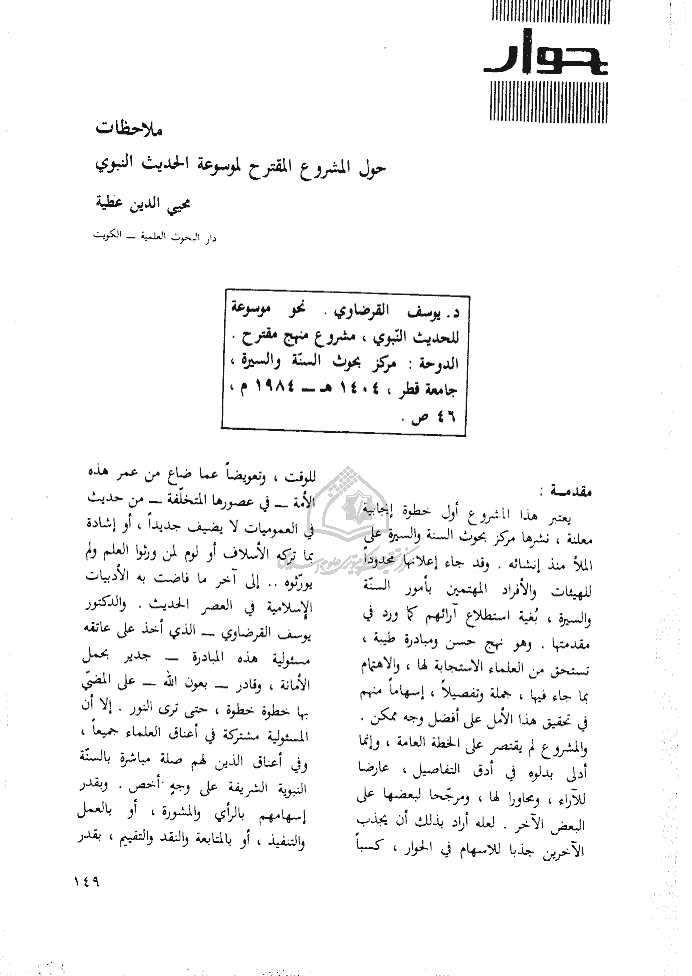 حوار
ملاحظات
حول المشروع المقترح لموسوعة الحديث النبوي
محيي الدين عطية
دار البحوث العلمية ــ الكويت
د. يوسف القرضاوي . نحو موسوعة
للحديث النّبوي ، مشروع منهج مقترح .
الدوحة : مركز بحوث السنّة والسيرة ،
جامعة قطر ، ١٤٠٤ هـ ــ ١٩٨٤ م ،
٤٦ ص .
مقدمة :
يعتبر هذا المشروع أول خطوة إيجابية
معلنة ، نشرها مركز بحوث السنة والسيرة على
الملأ منذ إنشائه . وقد جاء إعلانها محدوداً
للهيئات والأفراد المهتمين بأمور السنّة
والسيرة ، بُغية استطلاع آرائهم كما ورد في
مقدمتها . وهو نهج حسن ومبادرة طيبة ،
تستحق من العلماء الاستجابة لها ، والاهتمام
بما جاء فيها ، جملة وتفصيلاً ، إسهاماً منهم
في تحقيق هذا الأمل على أفضل وجه ممكن .
والمشروع لم يقتصر على الخطة العامة ، وإنما
أدلى بدلوه في أدق التفاصيل ، عارضا
للآراء ، ومحاورا لها ، ومرجّحا لبعضها على
البعض الآخر . لعله أراد بذلك أن يجذب
الآخرين جذبا للاسهام في الحوار ، كسباً
للوقت ، وتعويضاً عما ضاع من عمر هذه
الأمة ــ في عصورها المتخلّفة ــ من حديث
في العموميات لا يضيف جديداً ، أو إشادة
بما تركه الأسلاف أو لوم لمن ورثوا العلم ولم
يورّثوه .. إلى آخر ما فاضت به الأدبيات
الإسلامية في العصر الحديث . والدكتور
يوسف القرضاوي ــ الذي أخذ على عاتقه
مسئولية هذه المبادرة ــ جدير بحمل
الأمانة ، وقادر ــ بعون الله ــ على المضيّ
بها خطوة خطوة ، حتى ترى النور . إلا أن
المسئولية مشتركة في أعناق العلماء جميعاً ،
وفي أعناق الذين لهم صلة مباشرة بالسنّة
النبوية الشريفة على وجهٍ أخص . وبقدر
إسهامهم بالرأي والمشورة ، أو بالعمل
والتنفيذ ، أو بالمتابعة والنقد والتقييم ، بقدر
١٤٩